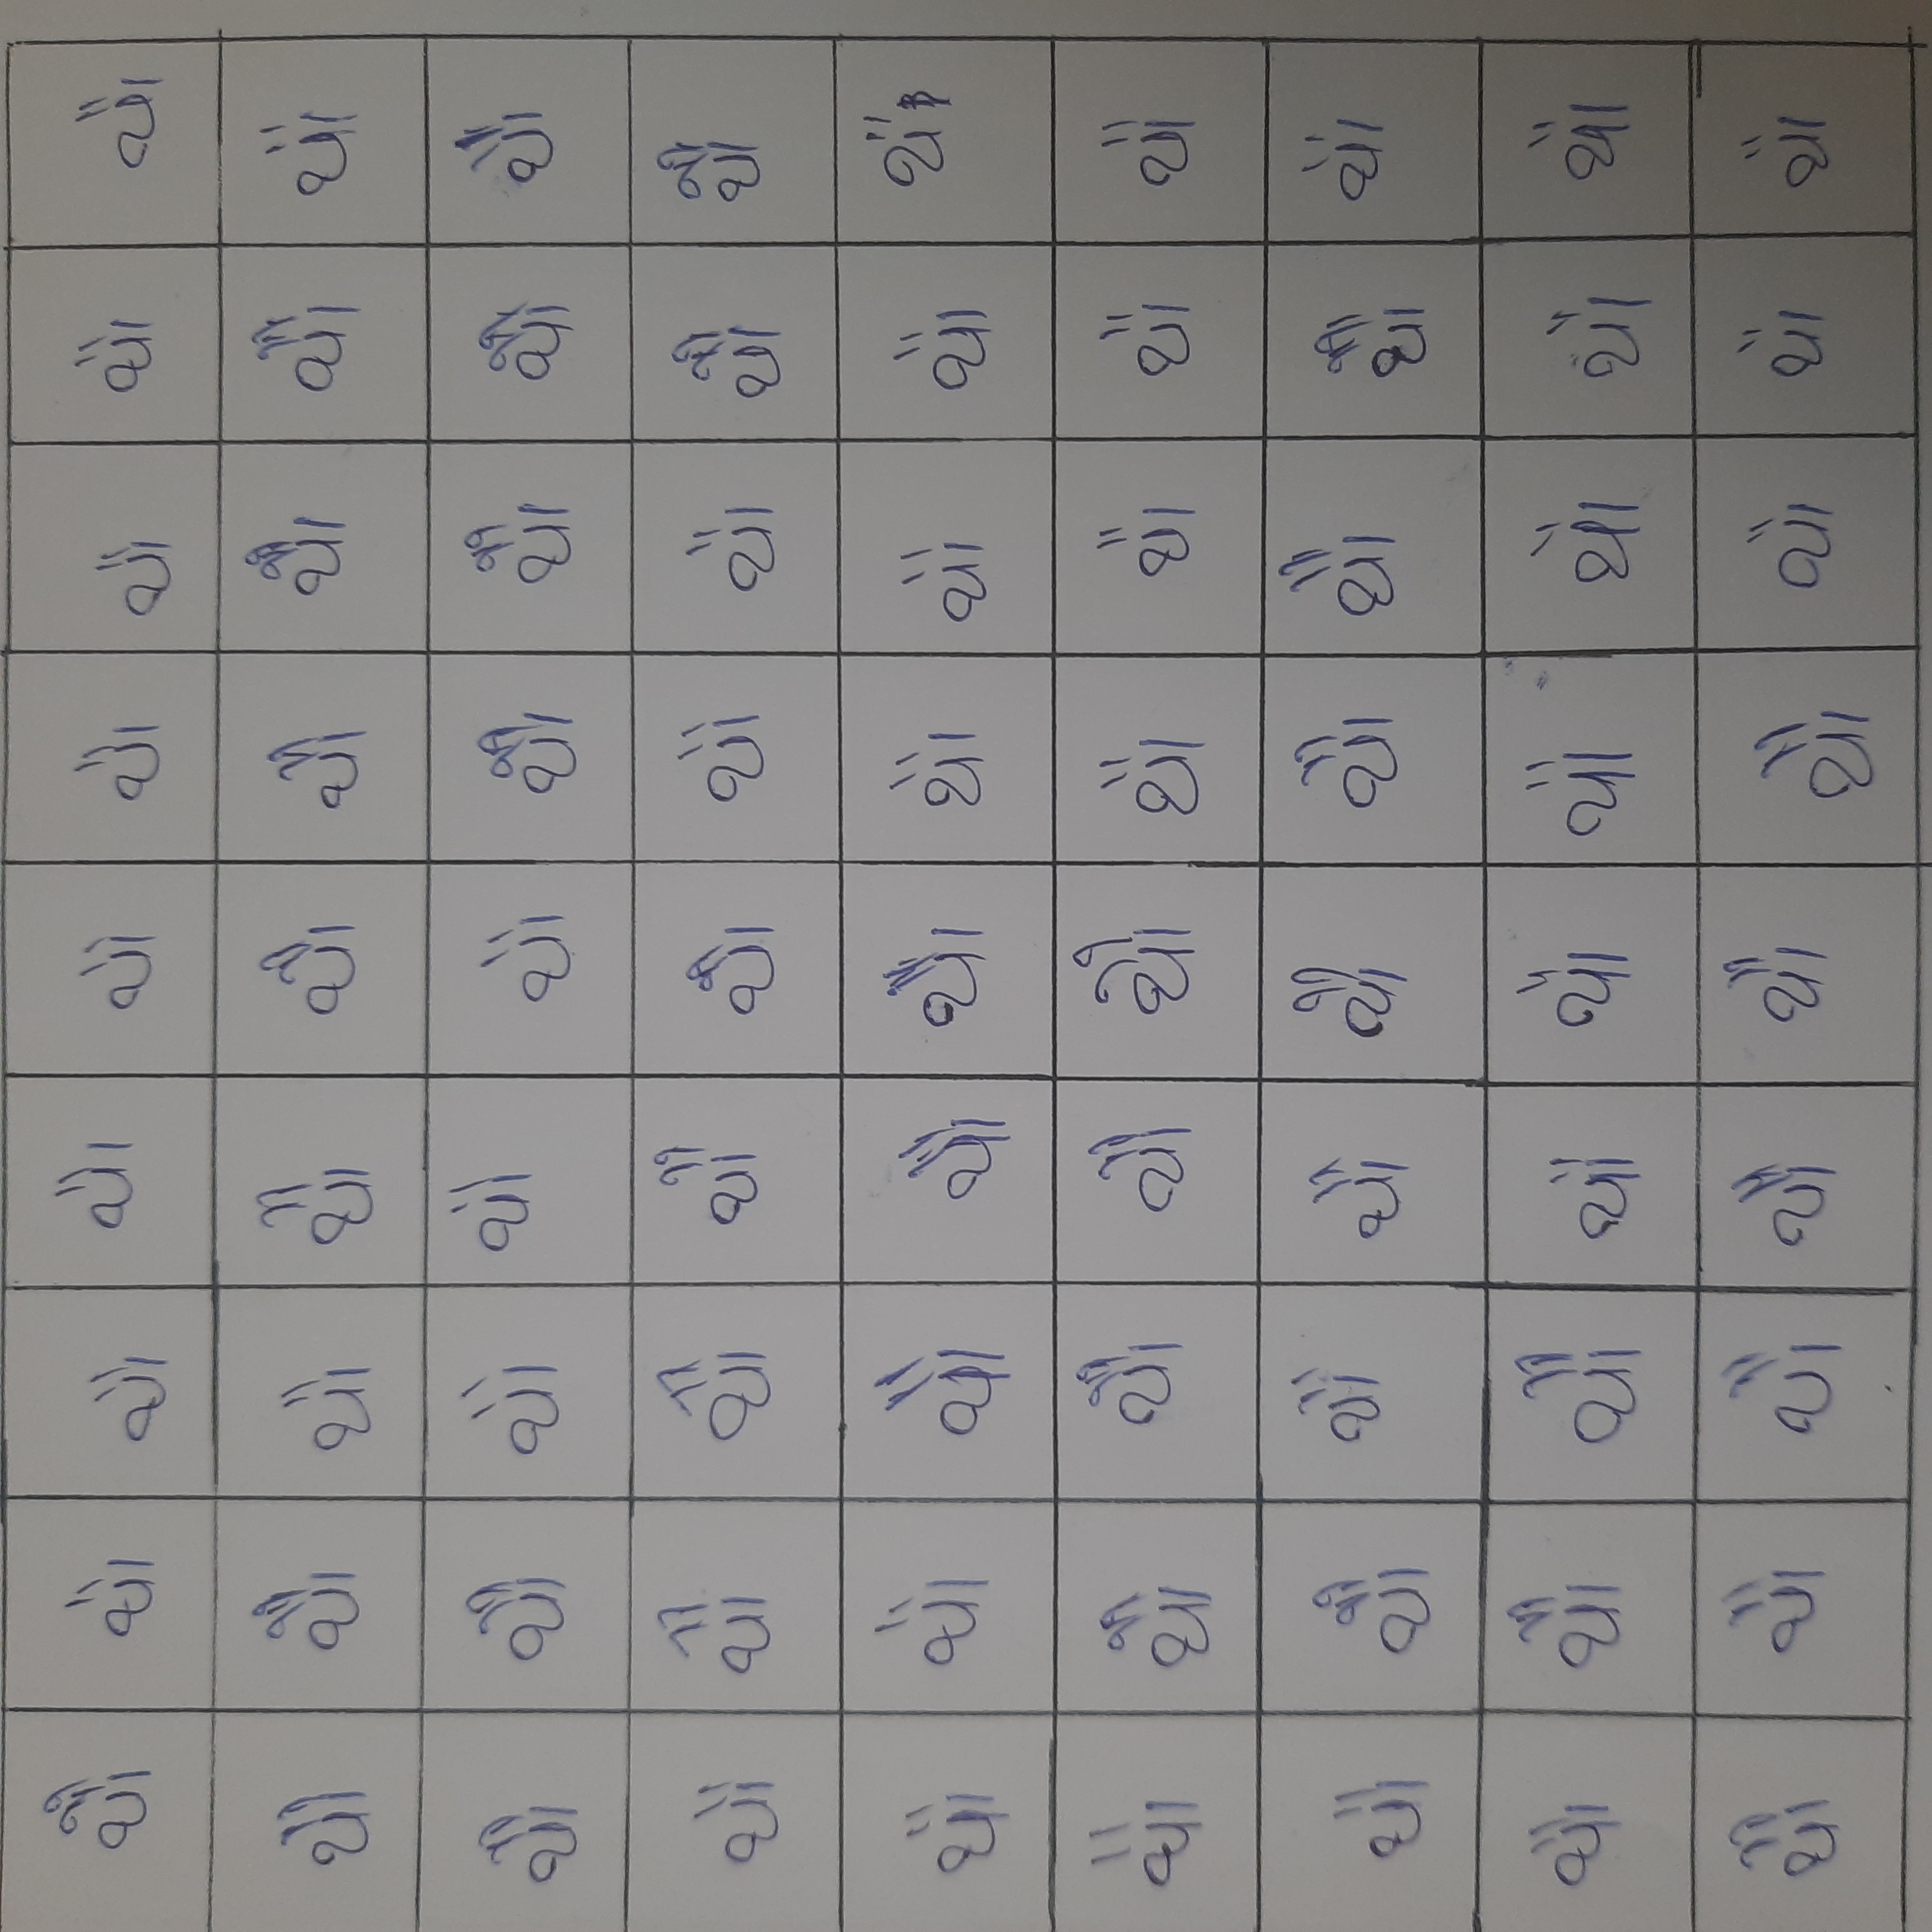 થૌ થૌ થૌ થૌ થૌ થૌ થૌ થૌ થૌ
થૌ થૌ થૌ થૌ થૌ થૌ થૌ થૌ થૌ
થૌ થૌ થૌ થૌ થૌ થૌ થૌ થૌ થૌ
થૌ થૌ થૌ થૌ થૌ થૌ થૌ થૌ થૌ
થૌ થૌ થૌ થૌ થૌ થૌ થૌ થૌ થૌ
થૌ થૌ થૌ થૌ થૌ થૌ થૌ થૌ થૌ
થૌ થૌ થૌ થૌ થૌ થૌ થૌ થૌ થૌ
થૌ થૌ થૌ થૌ થૌ થૌ થૌ થૌ થૌ
થૌ થૌ થૌ થૌ થૌ થૌ થૌ થૌ થૌ